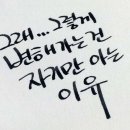 그래... 그렇게
변해가는건
자기만 아는
이유